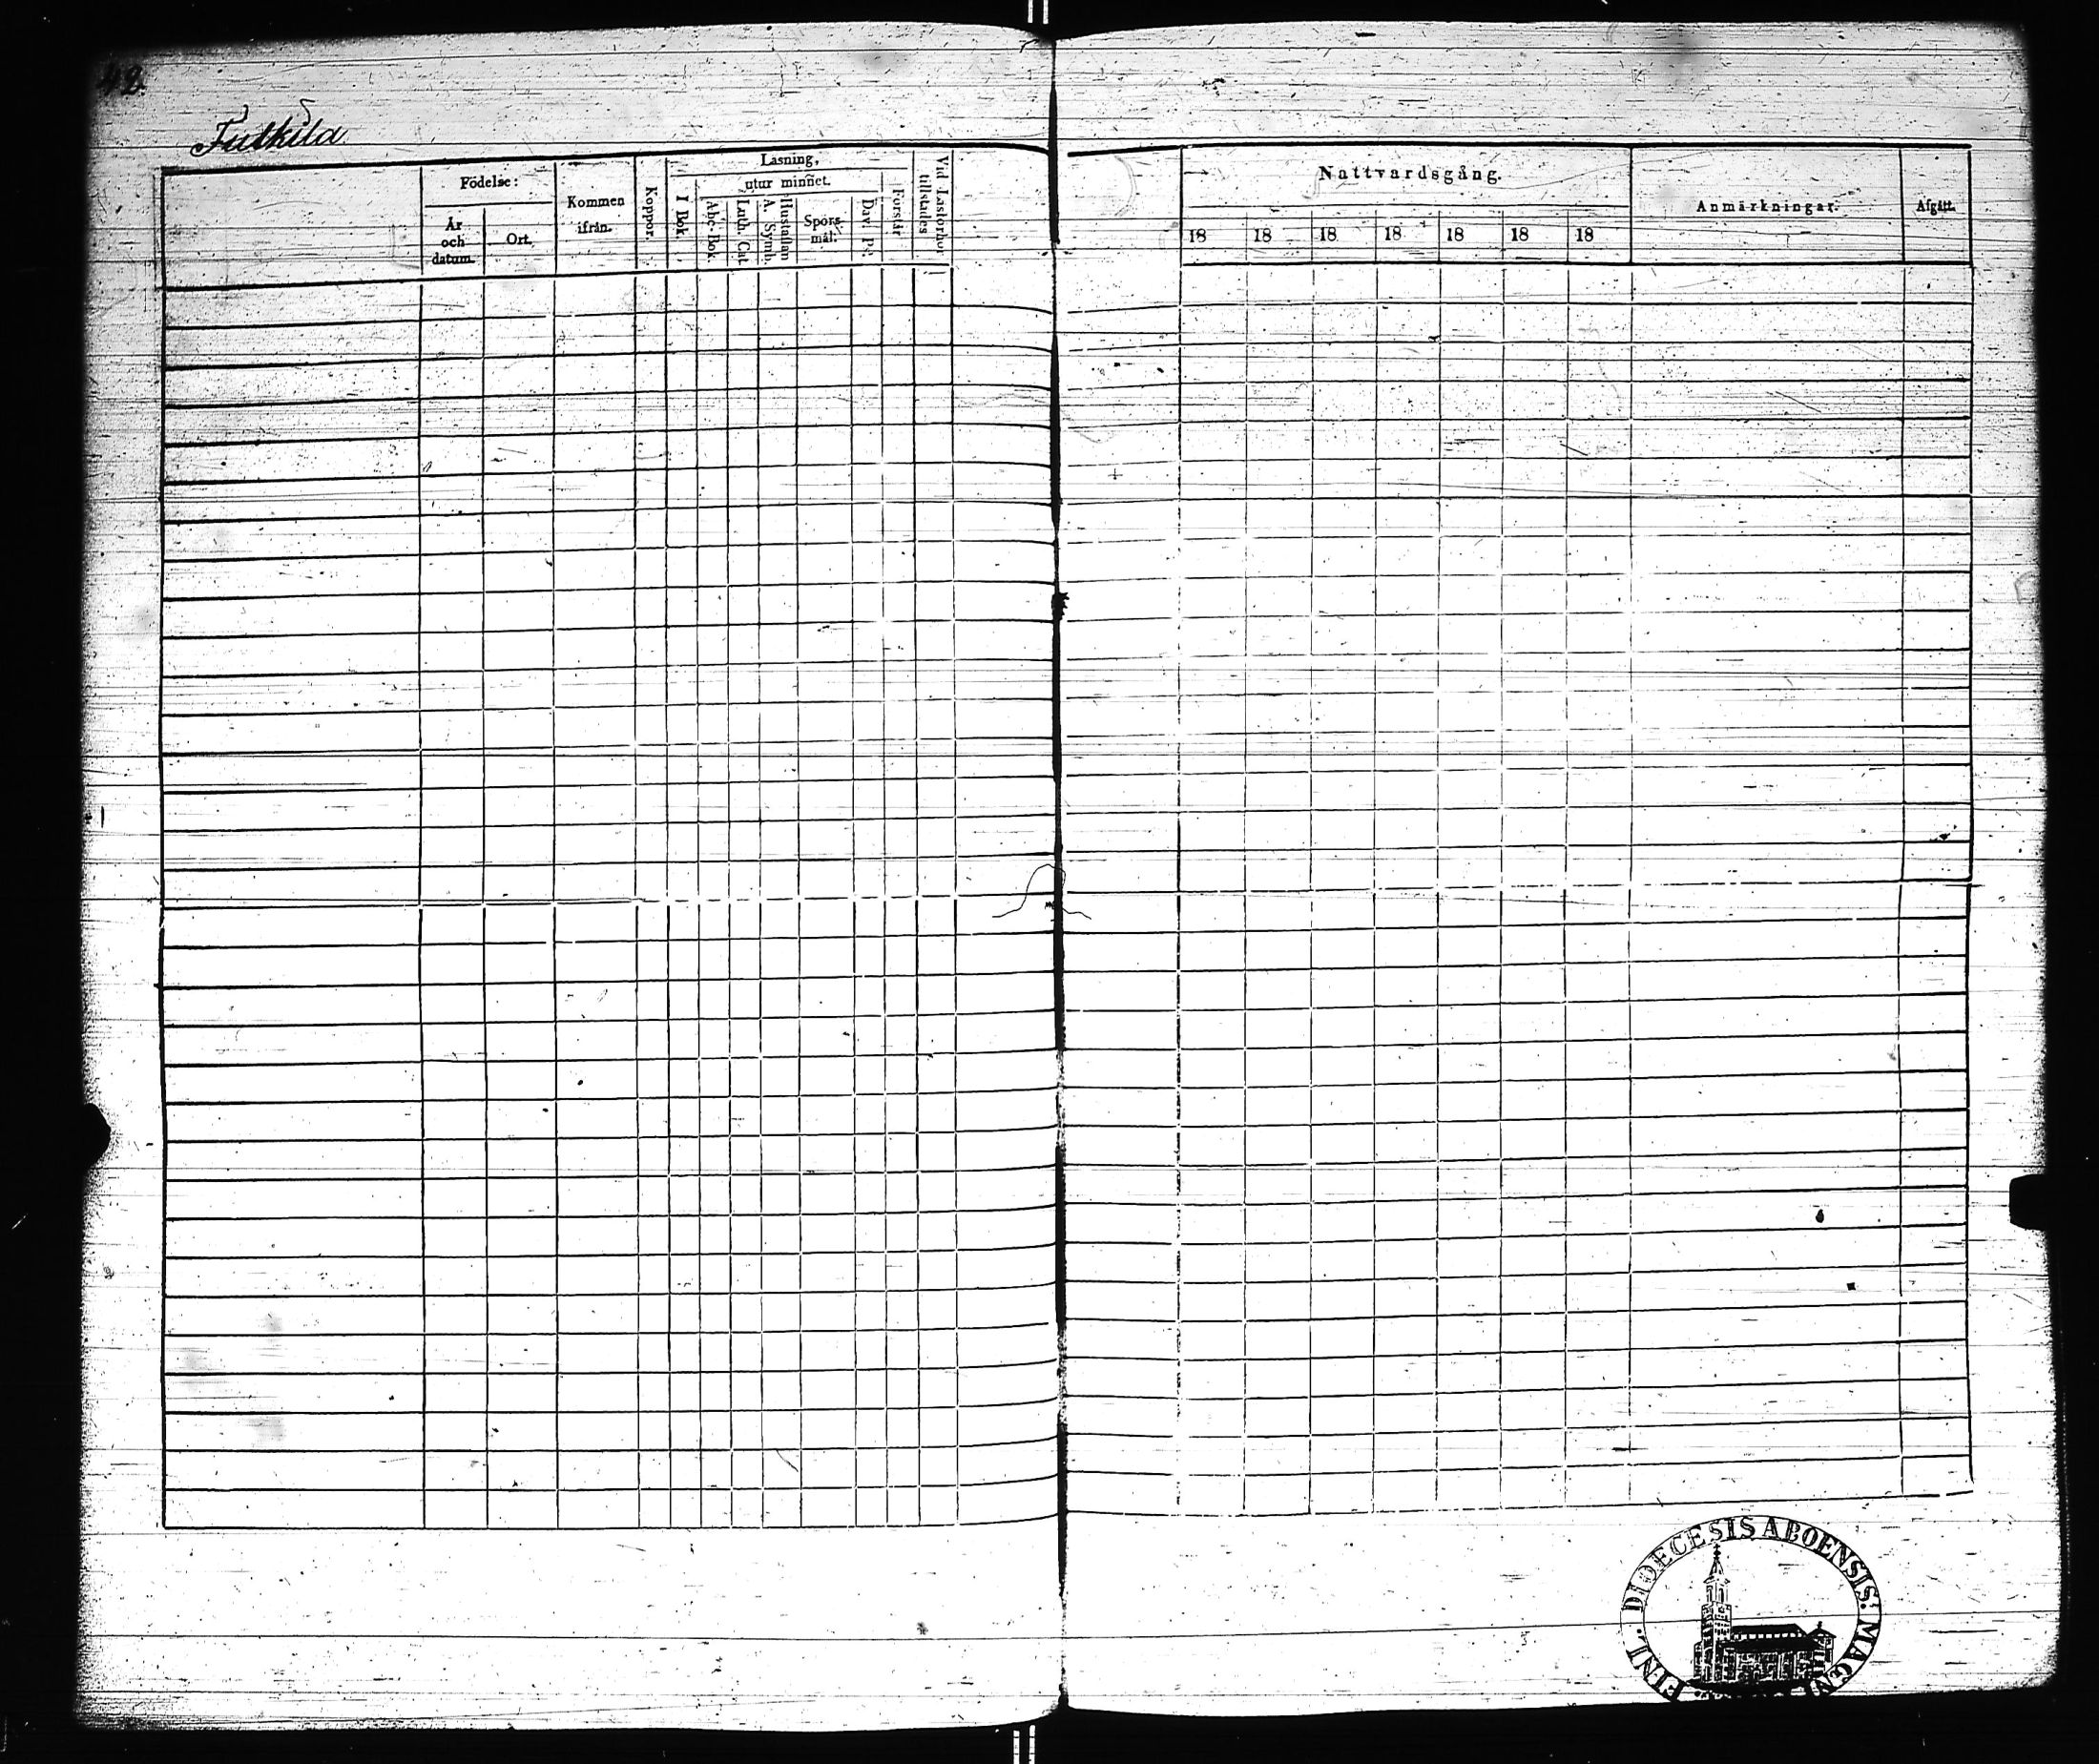 42.
Tulkila
Födelse:
År och datum.
Ort.
Kommen ifrån.
Koppor.
Läsning,
I Bok.
utur minnet.
Abc-Bok.
Luth. Cat.
Hustaflan A. Symb.
Spörs-mål.
Dav. Ps.
Förstår
Vid Läsförhör tillstädes
Nattvardsgång.
18 18 18 18 18 18 18
Anmärkningar.
Afgått.
DIOECESIS ABOENSIS. MAGNI
FINL.